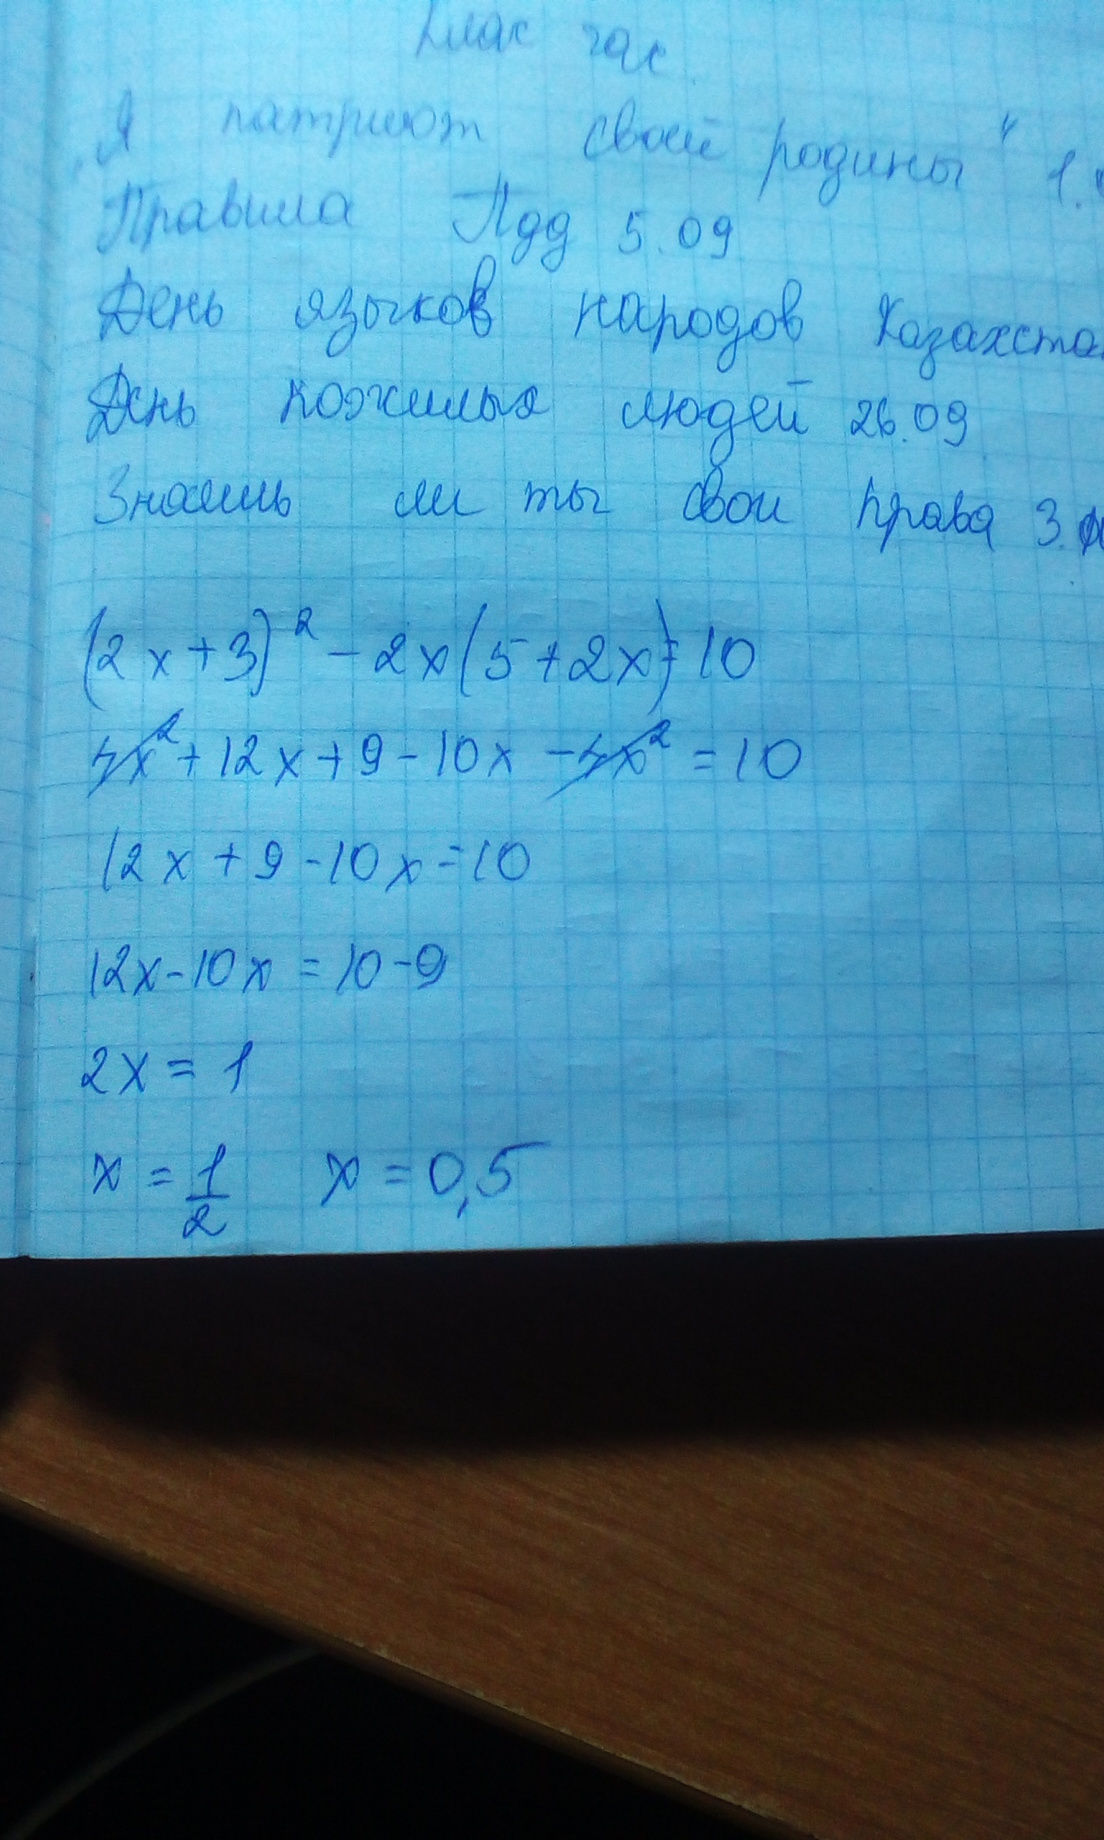 Клас час.
"Я патриот своей родины" 1.
Правила Пдд 5.09
День языков народов Казахста
День пожилых людей 26.09
Знаешь ли ты свои права 3.
(2x+3)² - 2x(5+2x)=10
4x² + 12x + 9 - 10x - 4x² = 10
12x + 9 - 10x = 10
12x - 10x = 10 - 9
2x = 1
x = 1/2 x = 0,5